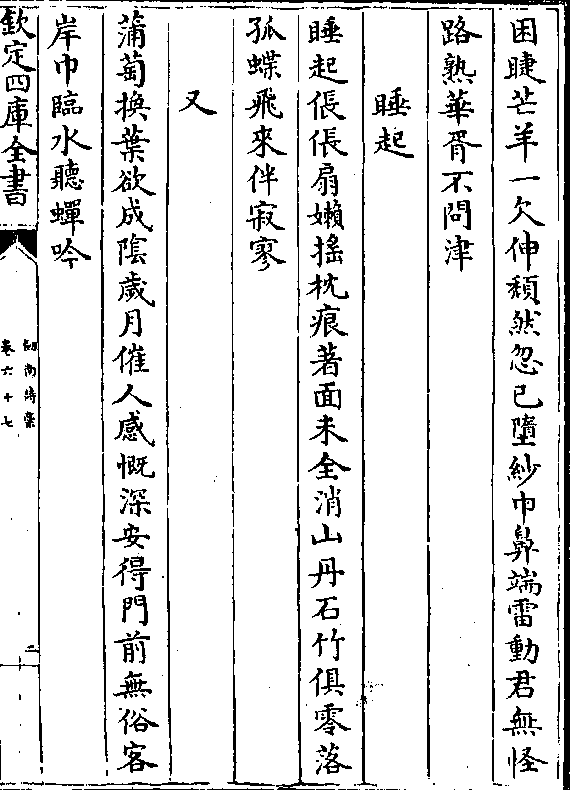 困睫芒羊一欠伸頽然忽已墮紗巾鼻端雷動君無怪
路熟華胥不問津
睡起
睡起倀倀扇嬾揺枕痕著面未全消山丹石竹俱零落
孤蝶飛來伴寂寥
又
蒲萄換葉欲成陰歲月催人感慨深安得門前無俗客
岸巾臨水聽蟬吟
欽定四庫全書
劔南詩槀
卷六十七
二